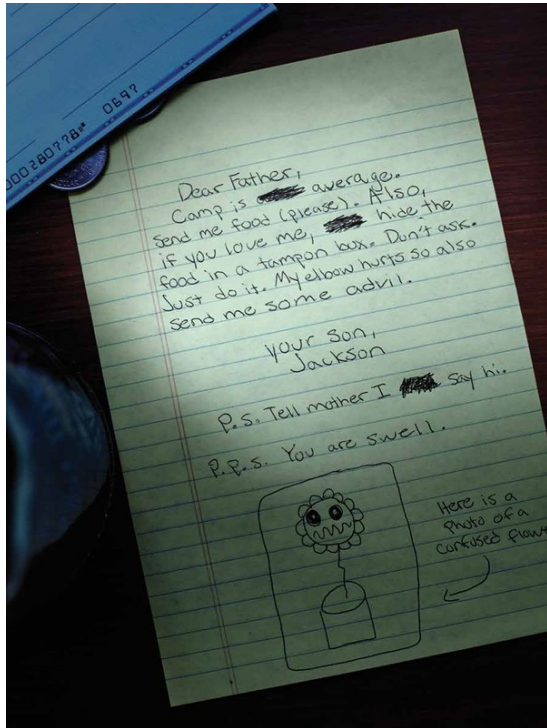 000280778⑈ 0697
Dear Father,
Camp is average.
Send me food (please). Also,
if you love me, hide the
food in a tampon box. Don't ask.
Just do it. My elbow hurts so also
send me some advil.
your son,
Jackson
P.S. Tell mother I say hi.
P.P.S. You are swell.
Here is a
photo of a
confused flow